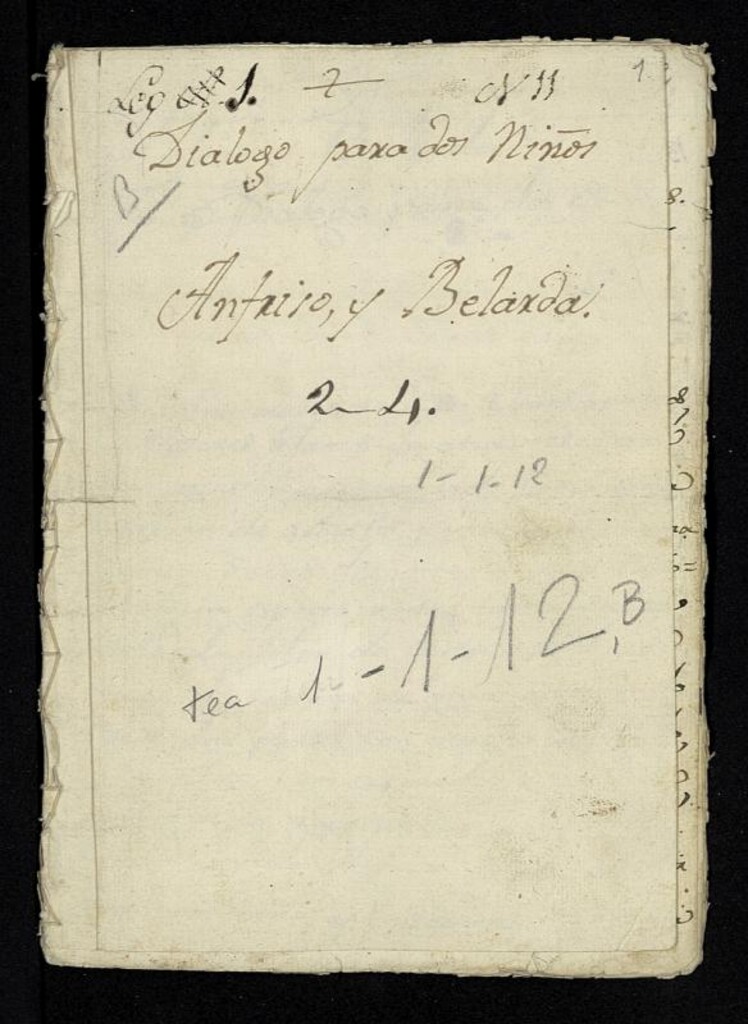 Leg 1. 2 N 11 1
Dialogo para dos Niños
B
Anfriso, y Belarda.
2-4.
1-1-12
tea 1-1-12, B